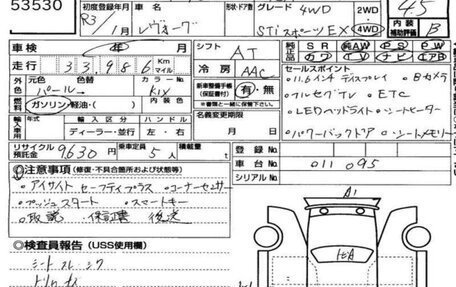 53530
初度登録年月
R3/1月
レヴォーグ
形状・ドア数
グレード 4WD
STiスポーツEX
2WD・4WD
45
内装補助評価 B
車検 年 月
シフト AT
SR AW PS
カワ TV ナビ エアB
走行 33986 Km マイル
冷房 AAC
セールスポイント
11.6インチディスプレイ ・Bカメラ
元色 色替
パール→
カラーNo. K1X
新車整備手帳(保証書) 有・無
・フルセグTV ・ETC
燃料 ガソリン・軽油・( )
名義変更期限
・LEDヘッドライト ・シートヒーター
輸入車用 輸入区分 ハンドル
ディーラー・並行 左・右
月 日
・パワーバックドア ・シートメモリー
リサイクル預託金 9630円
乗車定員 5人
積載量 t
登録No.
車台No. 011095
シリアルNo.
◎注意事項(修復・不具合箇所・欠品等)
・アイサイト セーフティプラス ・コーナーセンサー
・プッシュスタート ・スマートキー
・取説 保証書 後送
◎検査員報告(USS使用欄)
シートスレ・シワ
A1